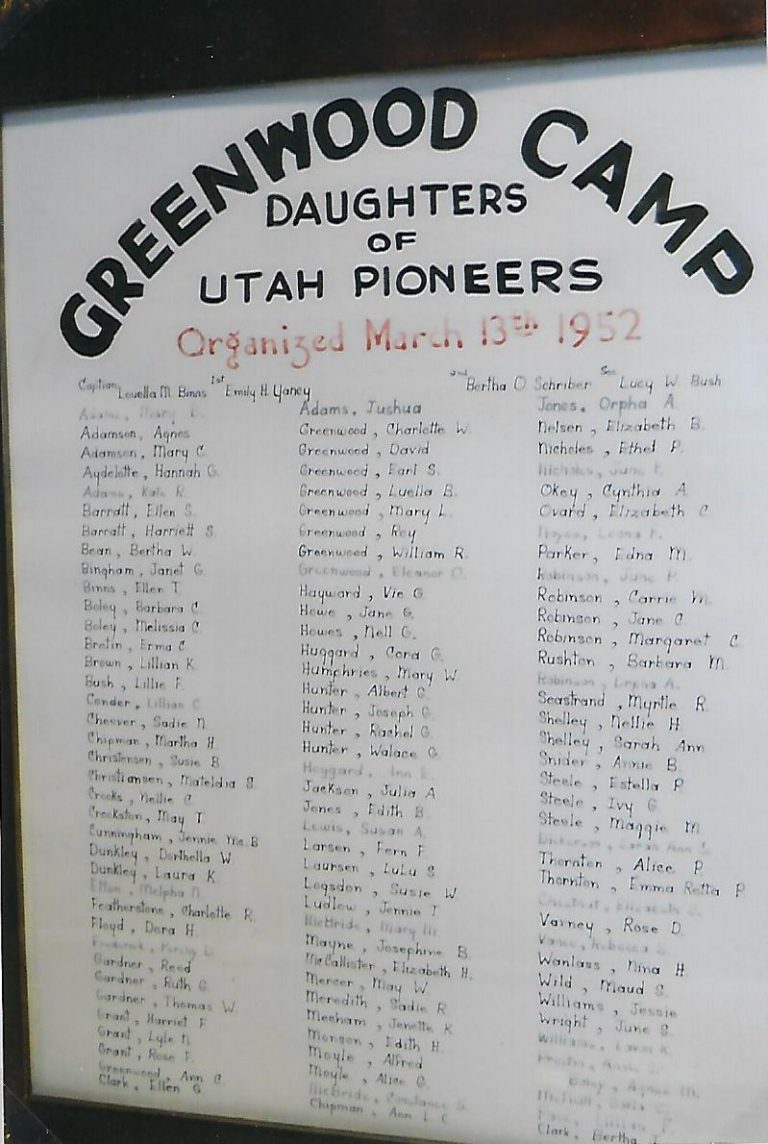 GREENWOOD CAMP
DAUGHTERS
OF
UTAH PIONEERS
Organized March 13th 1952
Caption Louella M. Binns 1st Emily H. Yancy 2nd Bertha O Schriber Sec Lucy W Bush
Adams, Mary
Adamson, Agnes
Adamson, Mary C.
Aydelotte, Hannah G.
Adams, Kate R.
Barratt, Ellen S.
Barratt, Harriett S.
Bean, Bertha W
Bingham, Janet G.
Binns, Ellen T.
Boley, Barbara C.
Boley, Melissia C.
Bretin, Erma C.
Brown, Lillian K.
Bush, Lillie F.
Conder, Lillian C.
Cheever, Sadie N.
Chipman, Martha H.
Christensen, Susie B
Christiansen, Mateldia S.
Crooks, Nellie C
Crookston, May T.
Cunningham, Jennie Mc.B
Dunkley, Dorthella W.
Dunkley, Laura K.
Melpha N.
Featherstone, Charlotte R.
Floyd, Dora H.
Gardner, Reed
Gardner, Ruth G.
Gardner, Thomas W.
Grant, Harriet F
Grant, Lyle N.
Grant, Rose F.
Greenwood, Ann C.
Clark, Ellen G.
Adams, Jushua
Greenwood, Charlotte W.
Greenwood, David
Greenwood, Earl S.
Greenwood, Luella B.
Greenwood, Mary L.
Greenwood, Roy
Greenwood, William R.
Greenwood, Eleanor O.
Hayward, Vie G.
Howe, Jane G.
Howes, Nell G.
Huggard, Cora G.
Humphries, Mary W.
Hunter, Albert G.
Hunter, Joseph G.
Hunter, Rachel G.
Hunter, Walace G.
Hoggard, Ann
Jackson, Julia A
Jones, Edith B.
Lewis, Susan A.
Larsen, Fern F
Laursen, LuLu S
Logsdon, Susie W
Ludlow, Jennie T
McBride, Mary M.
Mayne, Josephine B.
McCallister, Elizabeth H.
Mercer, May W
Meredith, Sadie R.
Mecham, Jenette K.
Monson, Edith H.
Moyle, Alfred
Moyle, Alice G.
McBride, Constance
Chipman, Ann L C
Jones, Orpha A.
Nelsen, Elizabeth B.
Nicholes, Ethel P.
Nicholes, June
Okey, Cynthia A.
Ovard, Elizabeth C
Leona F.
Parker, Edna M.
Robinson, June P.
Robinson, Carrie M.
Robinson, Jane C.
Robinson, Margaret C.
Rushton, Barbara M.
Robinson, Orpha A.
Seastrand, Myrtle R.
Shelley, Nellie H.
Shelley, Sarah Ann
Snider, Annie B.
Steele, Estella P
Steele, Ivy G
Steele, Maggie M.
Sarah Ann
Thornton, Alice P.
Thornton, Emma Retta P.
Elizabeth
Varney, Rose D.
Vance, Rebecca S.
Wanlass, Nina H.
Wild, Maud S.
Williams, Jessie
Wright, June S.
Williams,
Boley, Agnes M.
Clark, Bertha